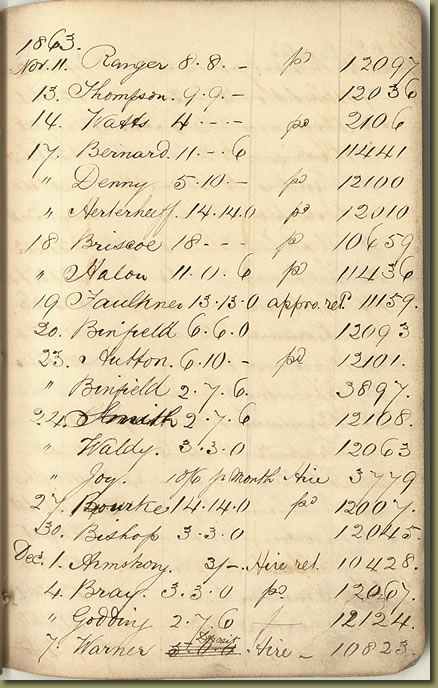 1863.
Nov. 11. Ranger 8.8.- pd 12097
13. Thompson. 9.9.- 12036
14. Watts 4.-.- pd 2106
17. Bernard. 11.-.6 11441
" Denny 5.10.- pd 12100
" 14.14.0 pd 12010
18 Briscoe 18.-.- pd 10659
" 11.0.6 pd 11436
19 Faulkner 13.13.0 appro. ret. 11159.
20. Binfield 6.6.0 12093
23. Hutton. 6.10.- pd 12101.
" Binfield 2.7.6. 3897.
24. Smith 2.7.6 12108.
" Waldy. 3.3.0 12063
" Joy. 10/6 p month Hire 3779
27. Bourke 14.14.0 pd 12007.
30. Bishop 3.3.0 12045.
Dec. 1. Armstrong. 3/- Hire ret. 10428.
4. Bray. 3.3.0 pd 12067.
" Godding 2.7.6 12124.
Deposit
7. Warner Hire - 10823